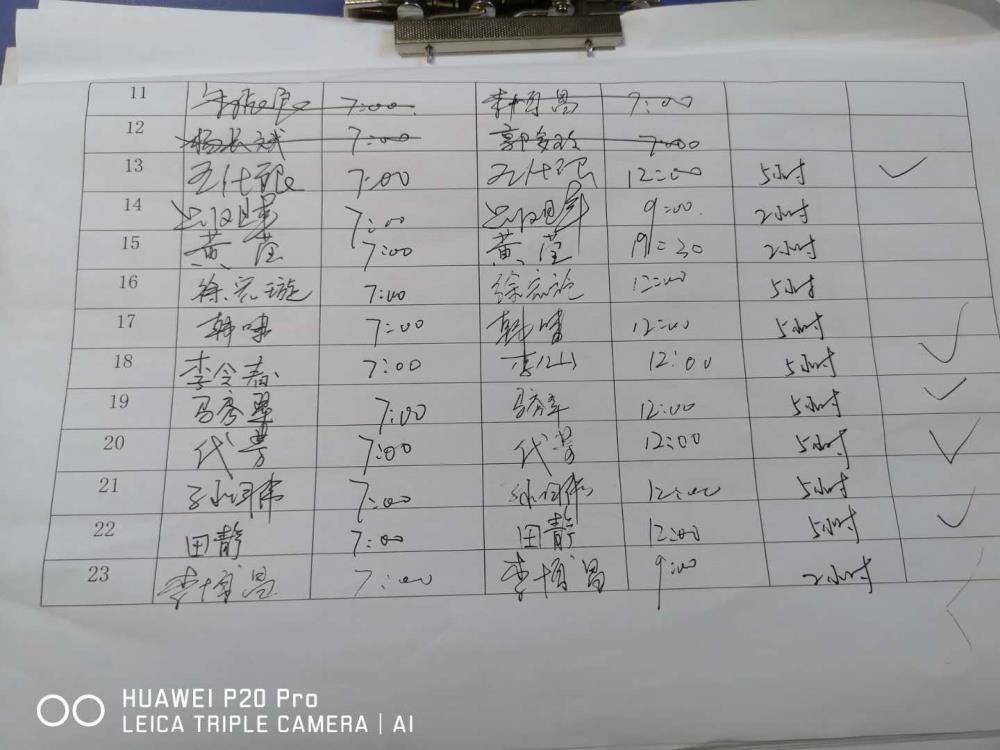 11 7:00 9:00
12 杨长斌 7:00 7:00
13 7:00 12:00 5小时
14 7:00 9:00 2小时
15 黄莹 7:00 黄莹 19:30 2小时
16 徐宏璇 7:00 12:00 5小时
17 韩啸 7:00 韩啸 12:00 5小时
18 李令春 7:00 12:00 5小时
19 马秀翠 7:00 12:00 5小时
20 代芳 7:00 代芳 12:00 5小时
21 7:00 12:00 5小时
22 田静 7:00 田静 12:00 5小时
23 李博昌 7:00 李博昌 9:00 2小时
HUAWEI P20 Pro
LEICA TRIPLE CAMERA | AI